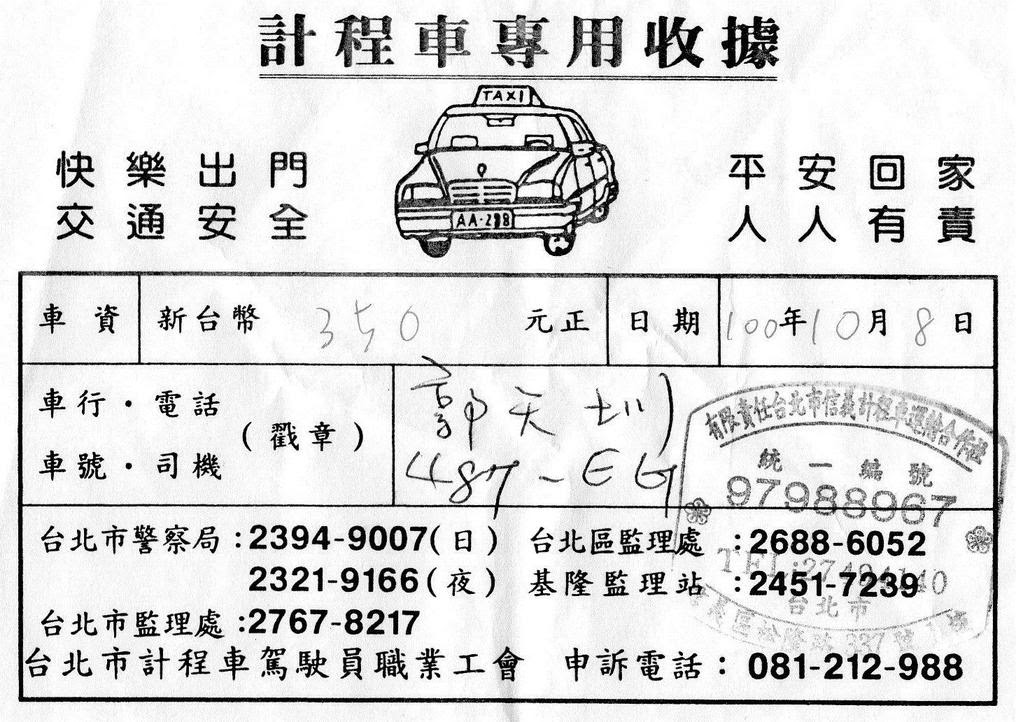 計程車專用收據
TAXI
快樂出門
交通安全
AA-288
平安回家
人人有責
車資 新台幣 350 元正 日期 100年10月8日
車行・電話
車號・司機
(戳章)
郭天圳
487-EG
有限責任台北市信義計程車運輸合作社
統一編號
97988967
TEL:27494140
台北市
區 路 337 號
台北市警察局:2394-9007(日)
2321-9166(夜)
台北市監理處:2767-8217
台北區監理處:2688-6052
基隆監理站:2451-7239
台北市計程車駕駛員職業工會 申訴電話:081-212-988